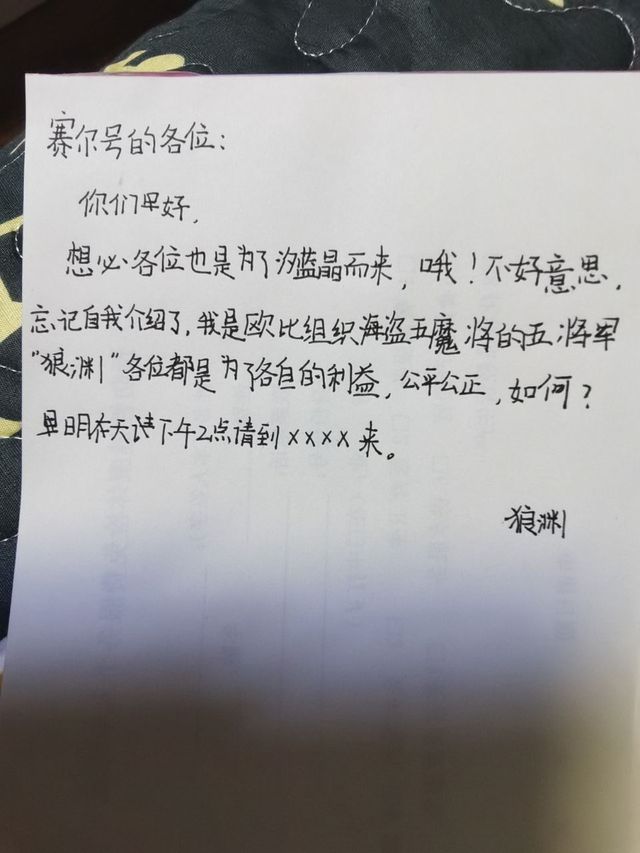 赛尔号的各位：
你们早好，
想必各位也是为了汐蓝晶而来，哦！不好意思，
忘记自我介绍了，我是欧比组织海盗五魔将的五将军
"狼渊"各位都是为了各自的利益，公平公正，如何？
明天下午2点请到xxxx来。
狼渊